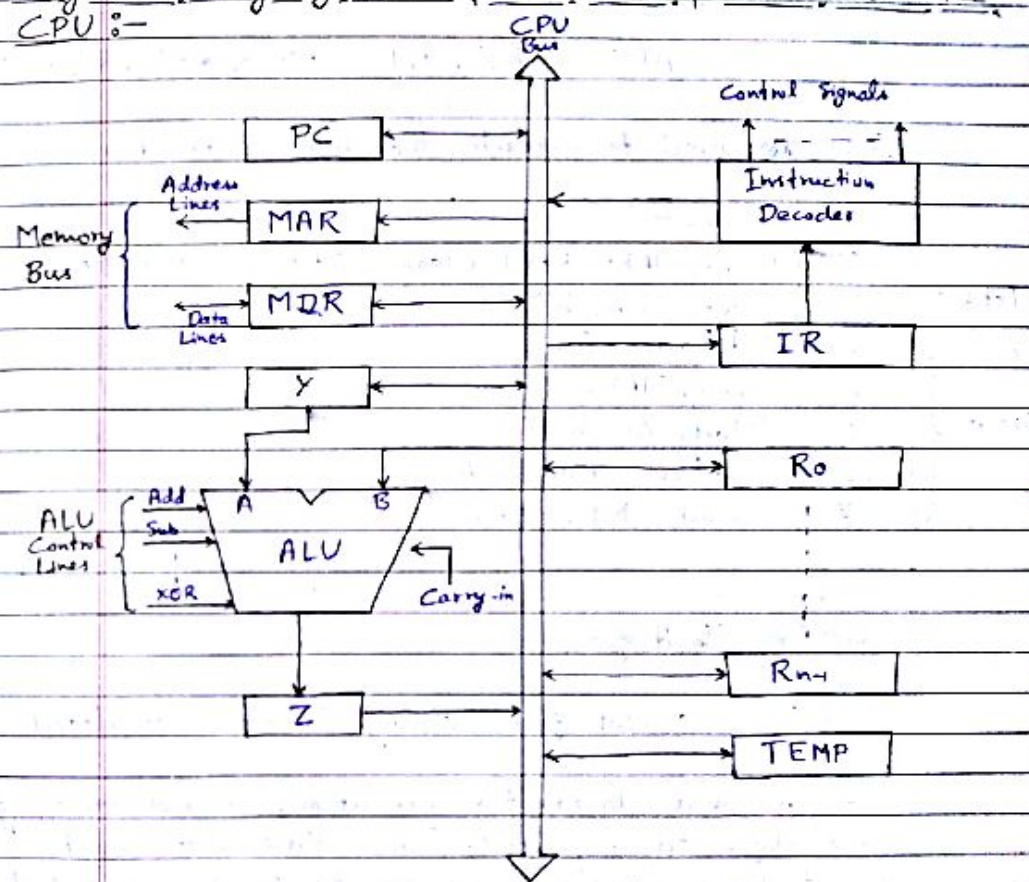 CPU :-
CPU
Bus
Control Signals
PC
Instruction
Decoder
Address
Lines
MAR
Memory
Bus
MDR
Data
Lines
IR
Y
R0
A B
ALU
Control
Lines
Add
Sub
XOR
ALU
Carry-in
Rn-1
Z
TEMP